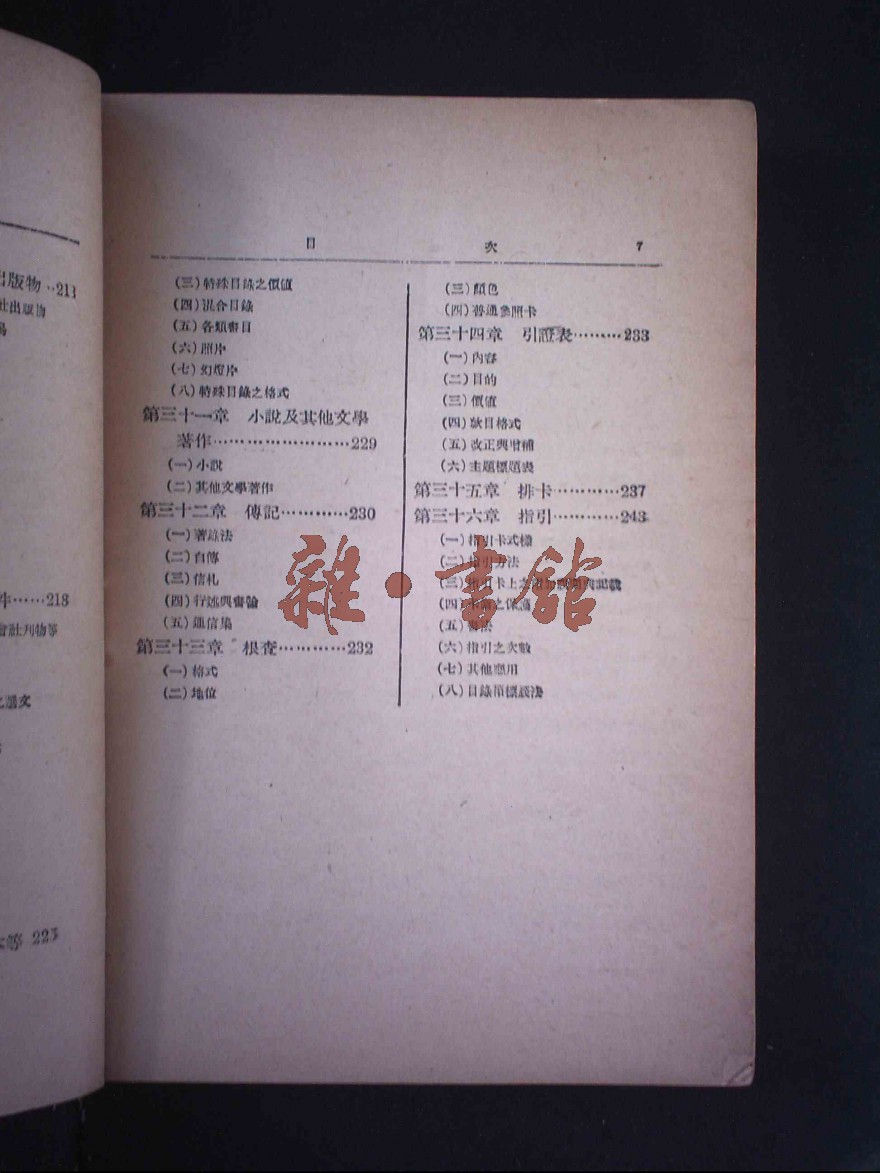 出版物··213
社出版物
牛······218
會社刊物等
等 225
目 次 7
(三)特殊目錄之價值
(四)混合目錄
(五)各類書目
(六)照片
(七)幻燈片
(八)特殊目錄之格式
第三十一章 小說及其他文學
著作························229
(一)小說
(二)其他文學著作
第三十二章 傳記············230
(一)著錄法
(二)自傳
(三)信札
(四)行述與書翰
(五)通信集
第三十三章 根查············232
(一)格式
(二)地位
(三)顏色
(四)普通參照卡
第三十四章 引證表·········233
(一)內容
(二)目的
(三)價值
(四)款目格式
(五)改正與增補
(六)主題標題表
第三十五章 排卡············237
第三十六章 指引············243
(一)指引卡式樣
(二)指引方法
(三)指引卡上之
(四)
(五)書法
(六)指引之次數
(七)其他應用
(八)目錄
雜·書館